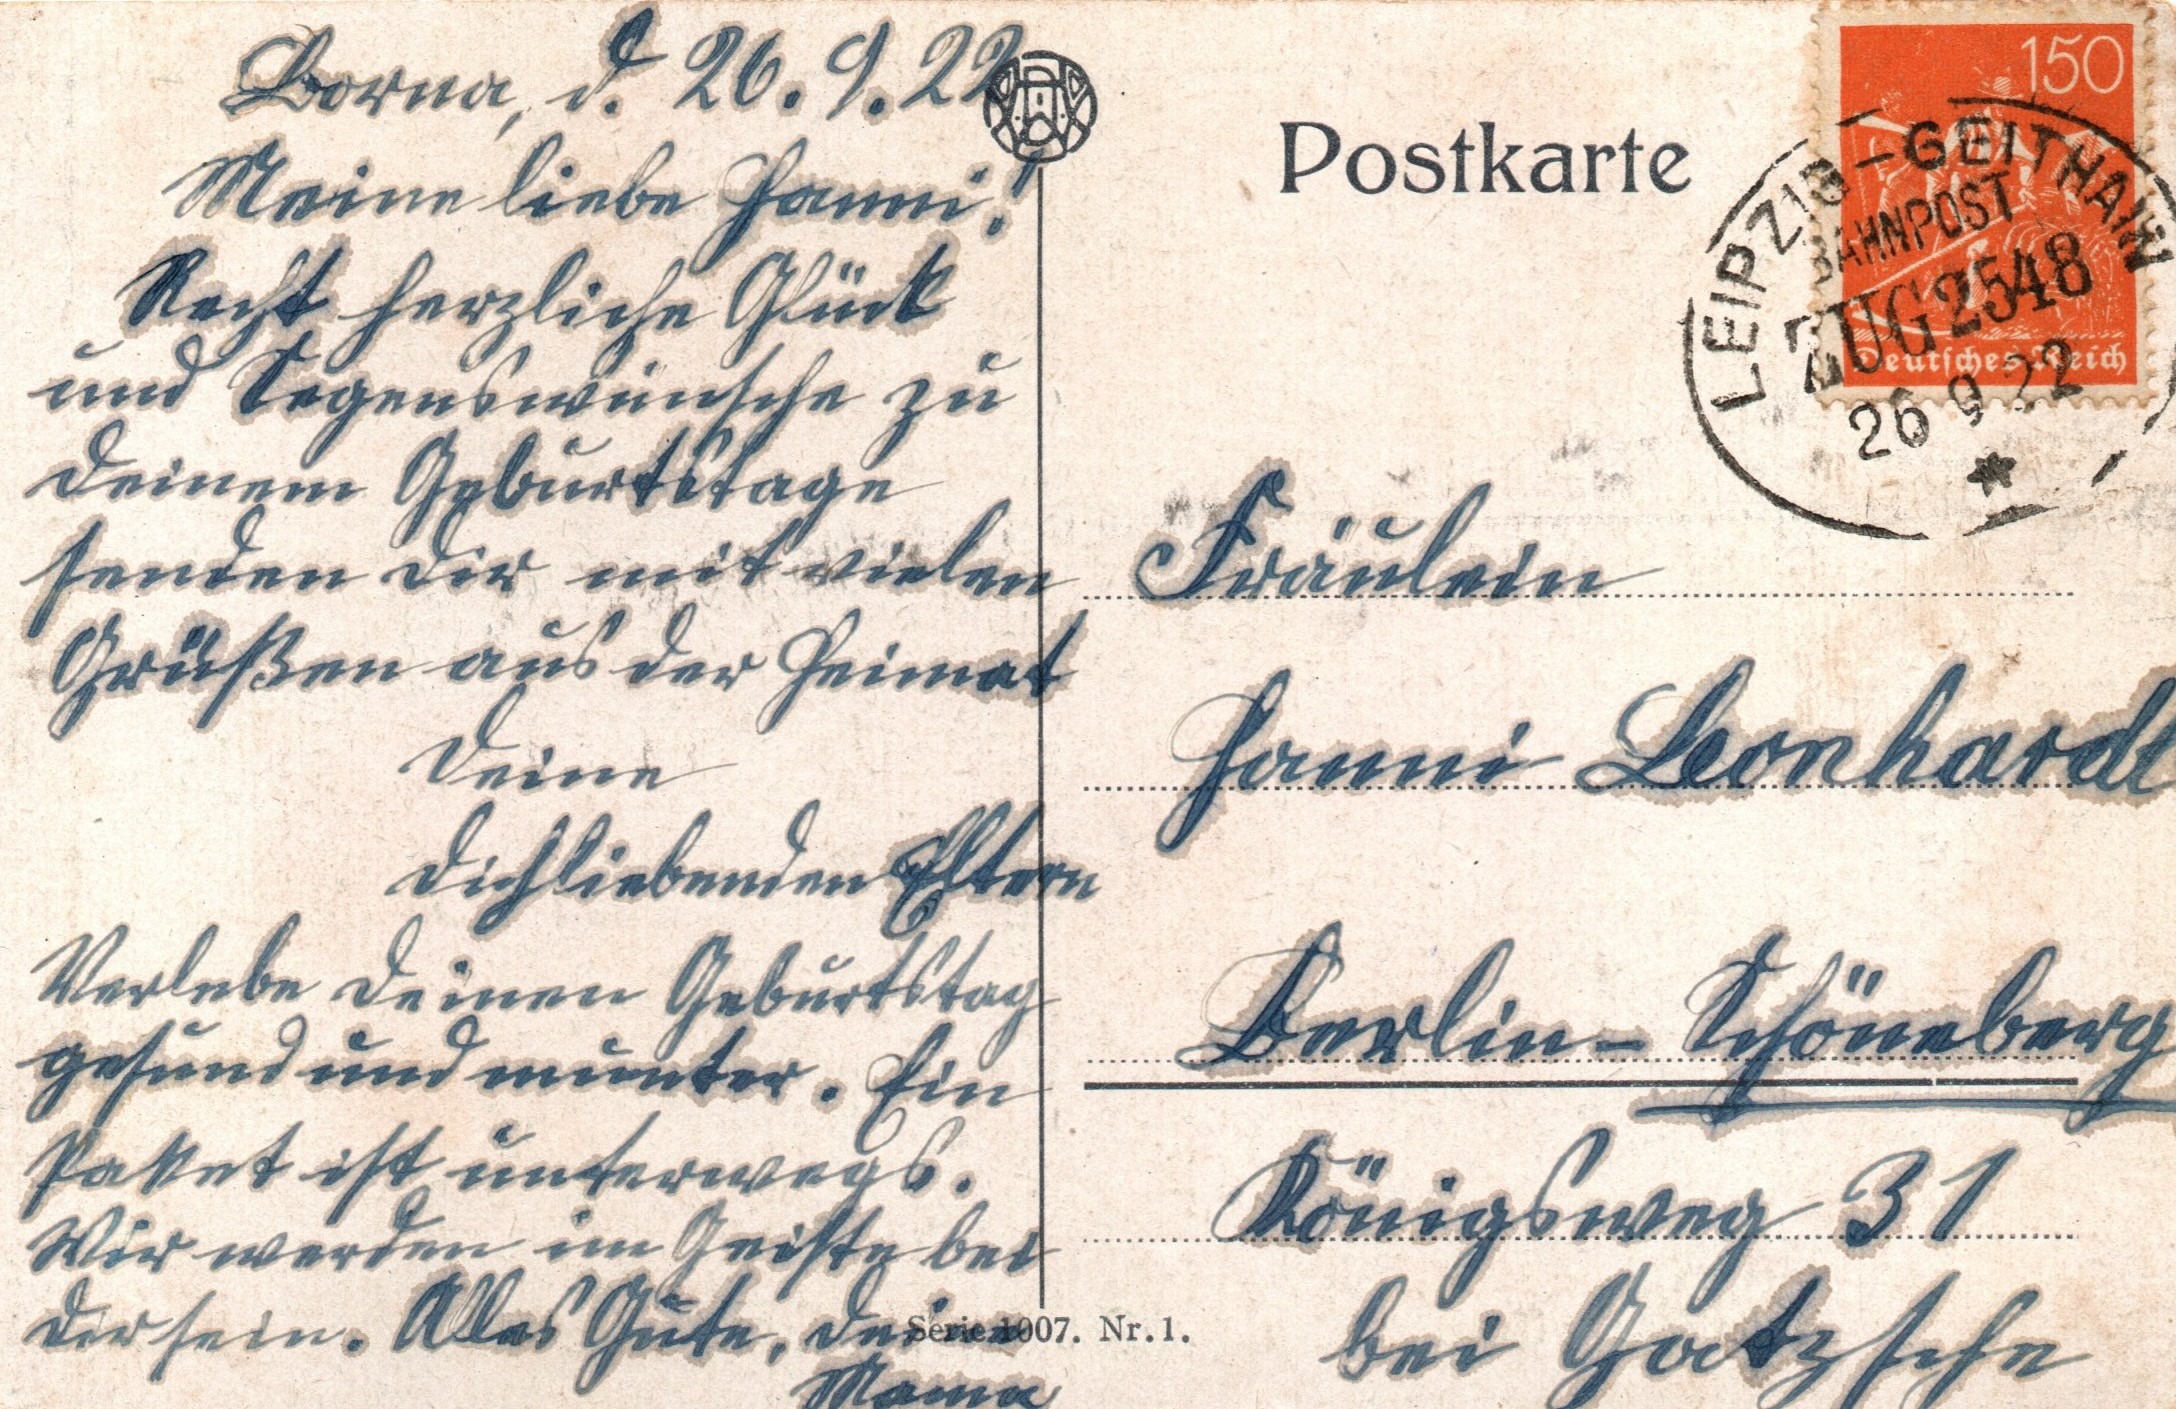 Borna, d. 26.9.22
Meine liebe Hanni!
Recht herzliche Glück
und Segenswünsche zu
Deinem Geburtstage
senden Dir mit vielen
Grüßen aus der Heimat
Deine
Dichliebenden Eltern
Verlebe Deinen Geburtstag
gesund und munter. Ein
Paket ist unterwegs.
Wir werden im Geiste bei
Dir sein. Alles Gute, Deine
Mama
Serie 1007. Nr. 1.
Postkarte
150
Deutsches Reich
LEIPZIG - GEITHAIN
BAHNPOST
ZUG 2548
26 9 22
Fräulein
Hanni Leonhardt
Berlin-Schöneberg
Königsweg 31
bei Gatzsche